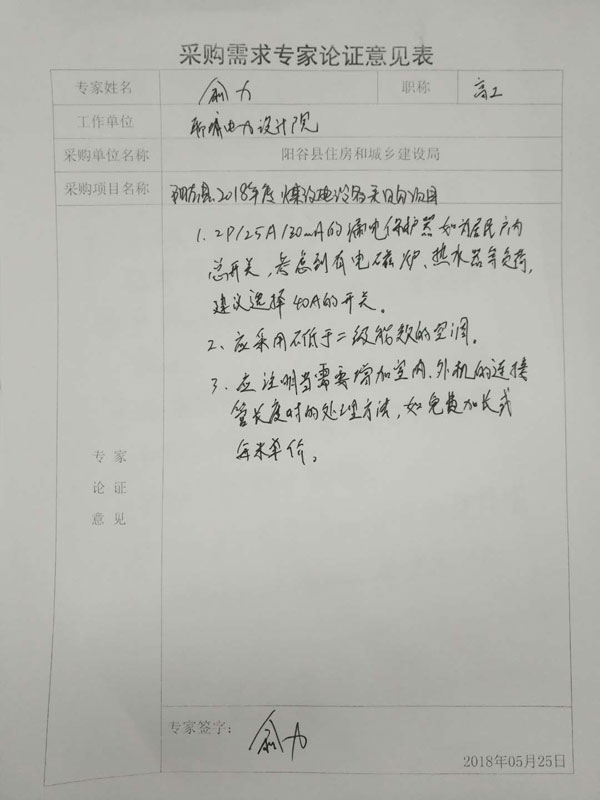 采购需求专家论证意见表
专家姓名 俞力 职称 高工
工作单位 聊城电力设计院
采购单位名称 阳谷县住房和城乡建设局
采购项目名称 阳谷县2018年度煤改电 项目
1. 2P/25A/30mA的漏电保护器如为居民户内
总开关,考虑到有电磁炉、热水器等负荷,
建议选择40A的开关。
2、应采用不低于二级能效的空调。
3、应注明当需要增加室内、外机的连接
管长度时的处理方法,如免费加长或
每米单价。
专家
论证
意见
专家签字: 俞力
2018年05月25日